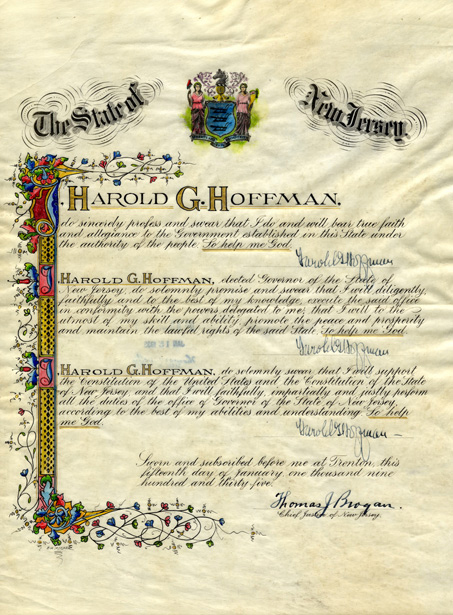 The State of New Jersey.
I, HAROLD G. HOFFMAN,
do sincerely profess and swear that I do and will bear true faith
and allegiance to the Government established in this State under
the authority of the people. So help me God.
Harold G Hoffman
I, HAROLD G. HOFFMAN, elected Governor of the State of
New Jersey, do solemnly promise and swear that I will diligently,
faithfully and to the best of my knowledge, execute the said office
in conformity with the powers delegated to me; that I will to the
utmost of my skill and ability, promote the peace and prosperity
and maintain the lawful rights of the said State. So help me God.
Harold G Hoffman
I, HAROLD G. HOFFMAN, do solemnly swear that I will support
the Constitution of the United States and the Constitution of the State
of New Jersey, and that I will faithfully, impartially and justly perform
all the duties of the office of Governor of the State of New Jersey
according to the best of my abilities and understanding. So help
me God.
Harold G Hoffman
Sworn and subscribed before me at Trenton, this
fifteenth day of January, one thousand nine
hundred and thirty five.
Thomas J Brogan.
Chief Justice of New Jersey.